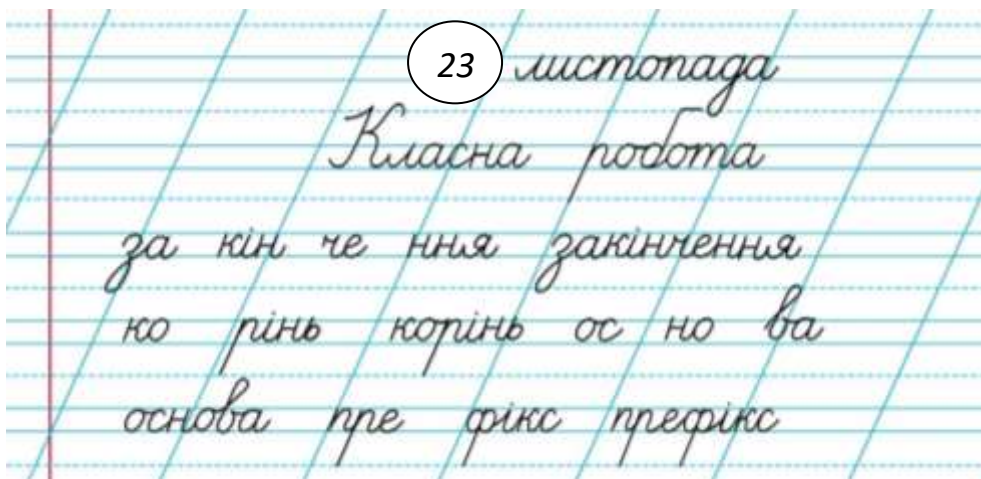 23 листопада
Класна робота
за кін че ння закінчення
ко рінь корінь ос но ва
основа пре фікс префікс